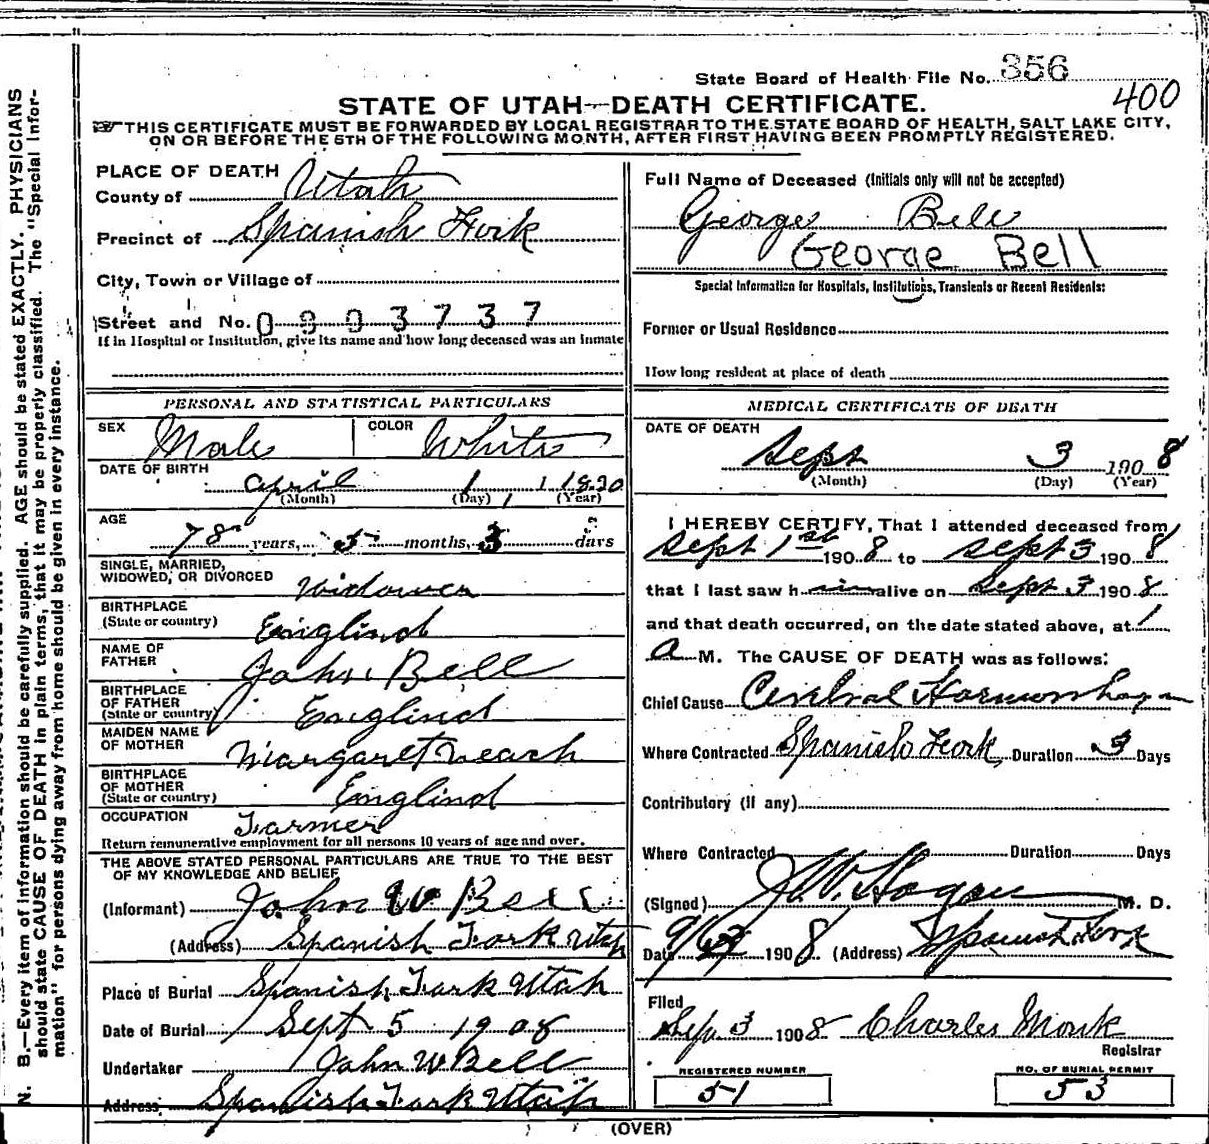 State Board of Health File No. 356
400
STATE OF UTAH—DEATH CERTIFICATE.
THIS CERTIFICATE MUST BE FORWARDED BY LOCAL REGISTRAR TO THE STATE BOARD OF HEALTH, SALT LAKE CITY,
ON OR BEFORE THE 5TH OF THE FOLLOWING MONTH, AFTER FIRST HAVING BEEN PROMPTLY REGISTERED.
N. B.—Every item of information should be carefully supplied. AGE should be stated EXACTLY. PHYSICIANS
should state CAUSE OF DEATH in plain terms, that it may be properly classified. The "Special Infor-
mation" for persons dying away from home should be given in every instance.
PLACE OF DEATH
County of Utah
Precinct of Spanish Fork
City, Town or Village of
Street and No. 0903737
If in Hospital or Institution, give its name and how long deceased was an inmate
Full Name of Deceased (Initials only will not be accepted)
George Bell
George Bell
Special Information for Hospitals, Institutions, Transients or Recent Residents:
Former or Usual Residence
How long resident at place of death
PERSONAL AND STATISTICAL PARTICULARS
SEX Male COLOR White
DATE OF BIRTH
April 1 1830
(Month) (Day) (Year)
AGE
78 years, 5 months, 3 days
SINGLE, MARRIED,
WIDOWED, OR DIVORCED Widower
BIRTHPLACE
(State or country) Englind
NAME OF
FATHER John Bell
BIRTHPLACE
OF FATHER
(State or country) Englind
MAIDEN NAME
OF MOTHER Margaret Leach
BIRTHPLACE
OF MOTHER
(State or country) Englind
OCCUPATION Farmer
Return remunerative employment for all persons 10 years of age and over.
THE ABOVE STATED PERSONAL PARTICULARS ARE TRUE TO THE BEST
OF MY KNOWLEDGE AND BELIEF
(Informant) John W Bell
(Address) Spanish Fork Utah
Place of Burial Spanish Fork Utah
Date of Burial Sept 5 1908
Undertaker John W Bell
Address Spanish Fork Utah
MEDICAL CERTIFICATE OF DEATH
DATE OF DEATH
Sept 3 1908
(Month) (Day) (Year)
I HEREBY CERTIFY, That I attended deceased from
Sept 1st 1908 to Sept 3 1908
that I last saw him alive on Sept 3 1908
and that death occurred, on the date stated above, at 1
A M. The CAUSE OF DEATH was as follows:
Chief Cause
Where Contracted Spanish Fork Duration 3 Days
Contributory (if any)
Where Contracted Duration Days
(Signed) M. D.
Date 1908 (Address) Spanish Fork
Filed
Sep. 3 1908 Charles Monk
Registrar
REGISTERED NUMBER
51
NO. OF BURIAL PERMIT
53
(OVER)